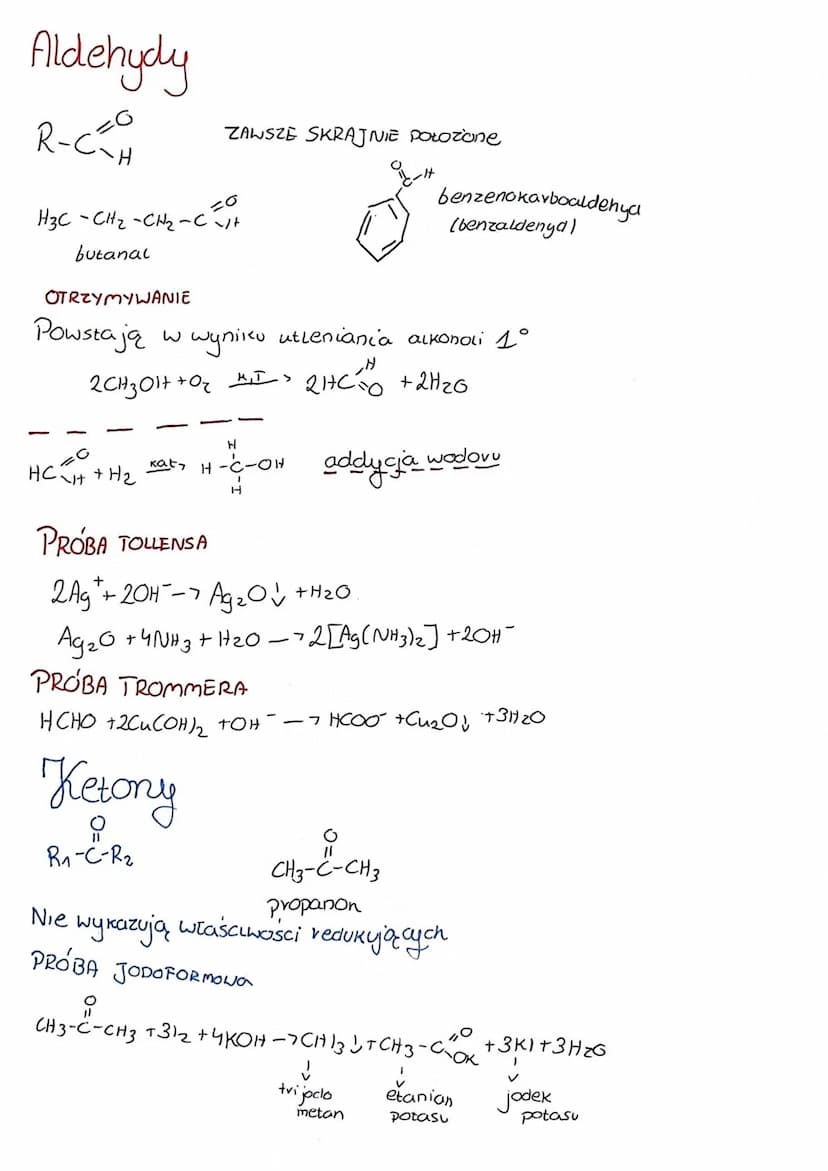 Aldehydy
R-C=O-H ZAWSZE SKRAJNIE POŁOŻONE
H3C-CH2-CH2-C=O-H
butanal
O=C-H
benzenokarboaldehyd
(benzaldehyd)
OTRZYMYWANIE
Powstają w wyniku utleniania alkoholi 1°
2CH3OH + O2 K,T → 2HC-H=O + 2H2O
HC=O-H + H2 kat→ H-C-OH addycja wodoru
H
H
PRÓBA TOLLENSA
2Ag⁺ + 2OH⁻ → Ag2O↓ + H2O
Ag2O + 4NH3 + H2O → 2[Ag(NH3)2] + 2OH⁻
PRÓBA TROMMERA
HCHO + 2Cu(OH)2 + OH⁻ → HCOO⁻ + Cu2O↓ + 3H2O
Ketony
O
R1-C-R2
O
CH3-C-CH3
propanon
Nie wykazują właściwości redukujących
PRÓBA JODOFORMOWA
O
CH3-C-CH3 + 3I2 + 4KOH → CHI3↓ + CH3-C=O-OK + 3KI + 3H2O
trijodo metan
etanian potasu
jodek potasu